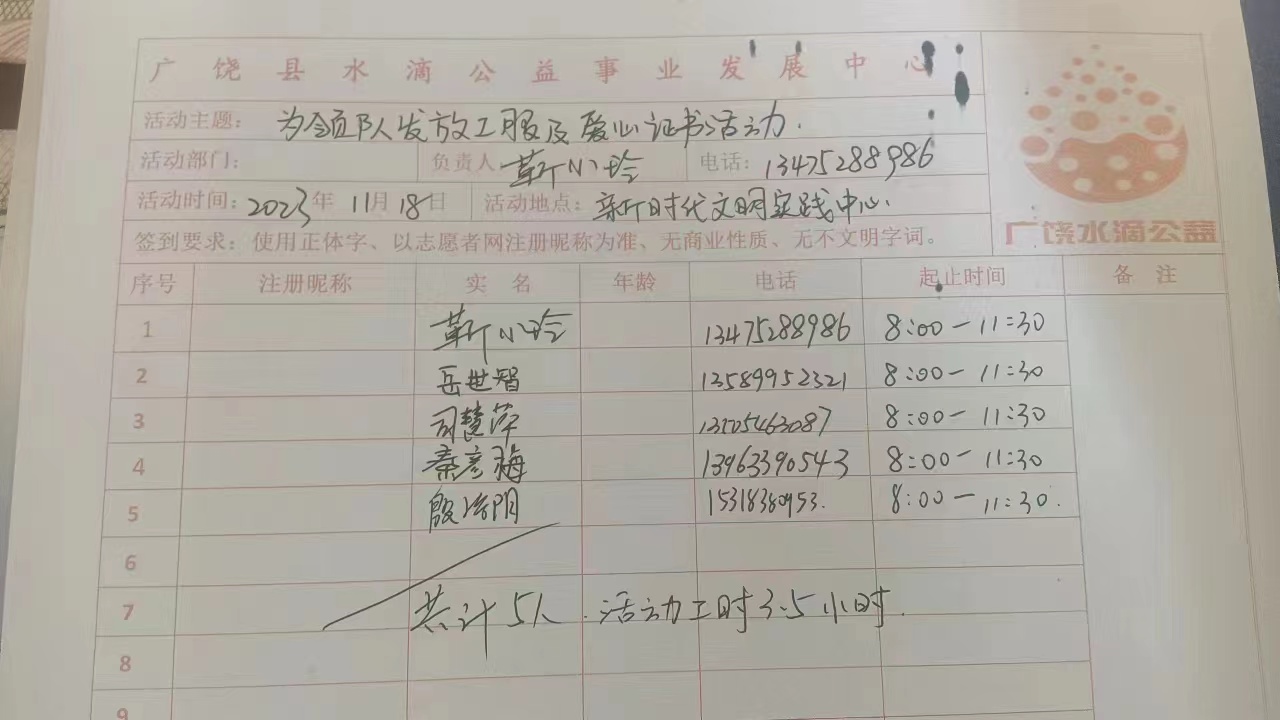 广饶县水滴公益事业发展中心
活动主题: 为领队发放工服及爱心证书活动.
活动部门: 负责人 靳小玲 电话: 13475288986
活动时间: 2023年 11月 18日 活动地点: 新时代文明实践中心.
广饶水滴公益
签到要求: 使用正体字、以志愿者网注册昵称为准、无商业性质、无不文明字词。
序号 注册昵称 实 名 年龄 电话 起止时间 备 注
1 靳小玲 13475288986 8:00-11:30
2 岳世智 13589952321 8:00-11:30
3 司慧萍 13505463087 8:00-11:30
4 秦彦梅 13963390543 8:00-11:30
5 殷 15318380953. 8:00-11:30.
6
7 共计5人.活动工时3.5小时.
8
9